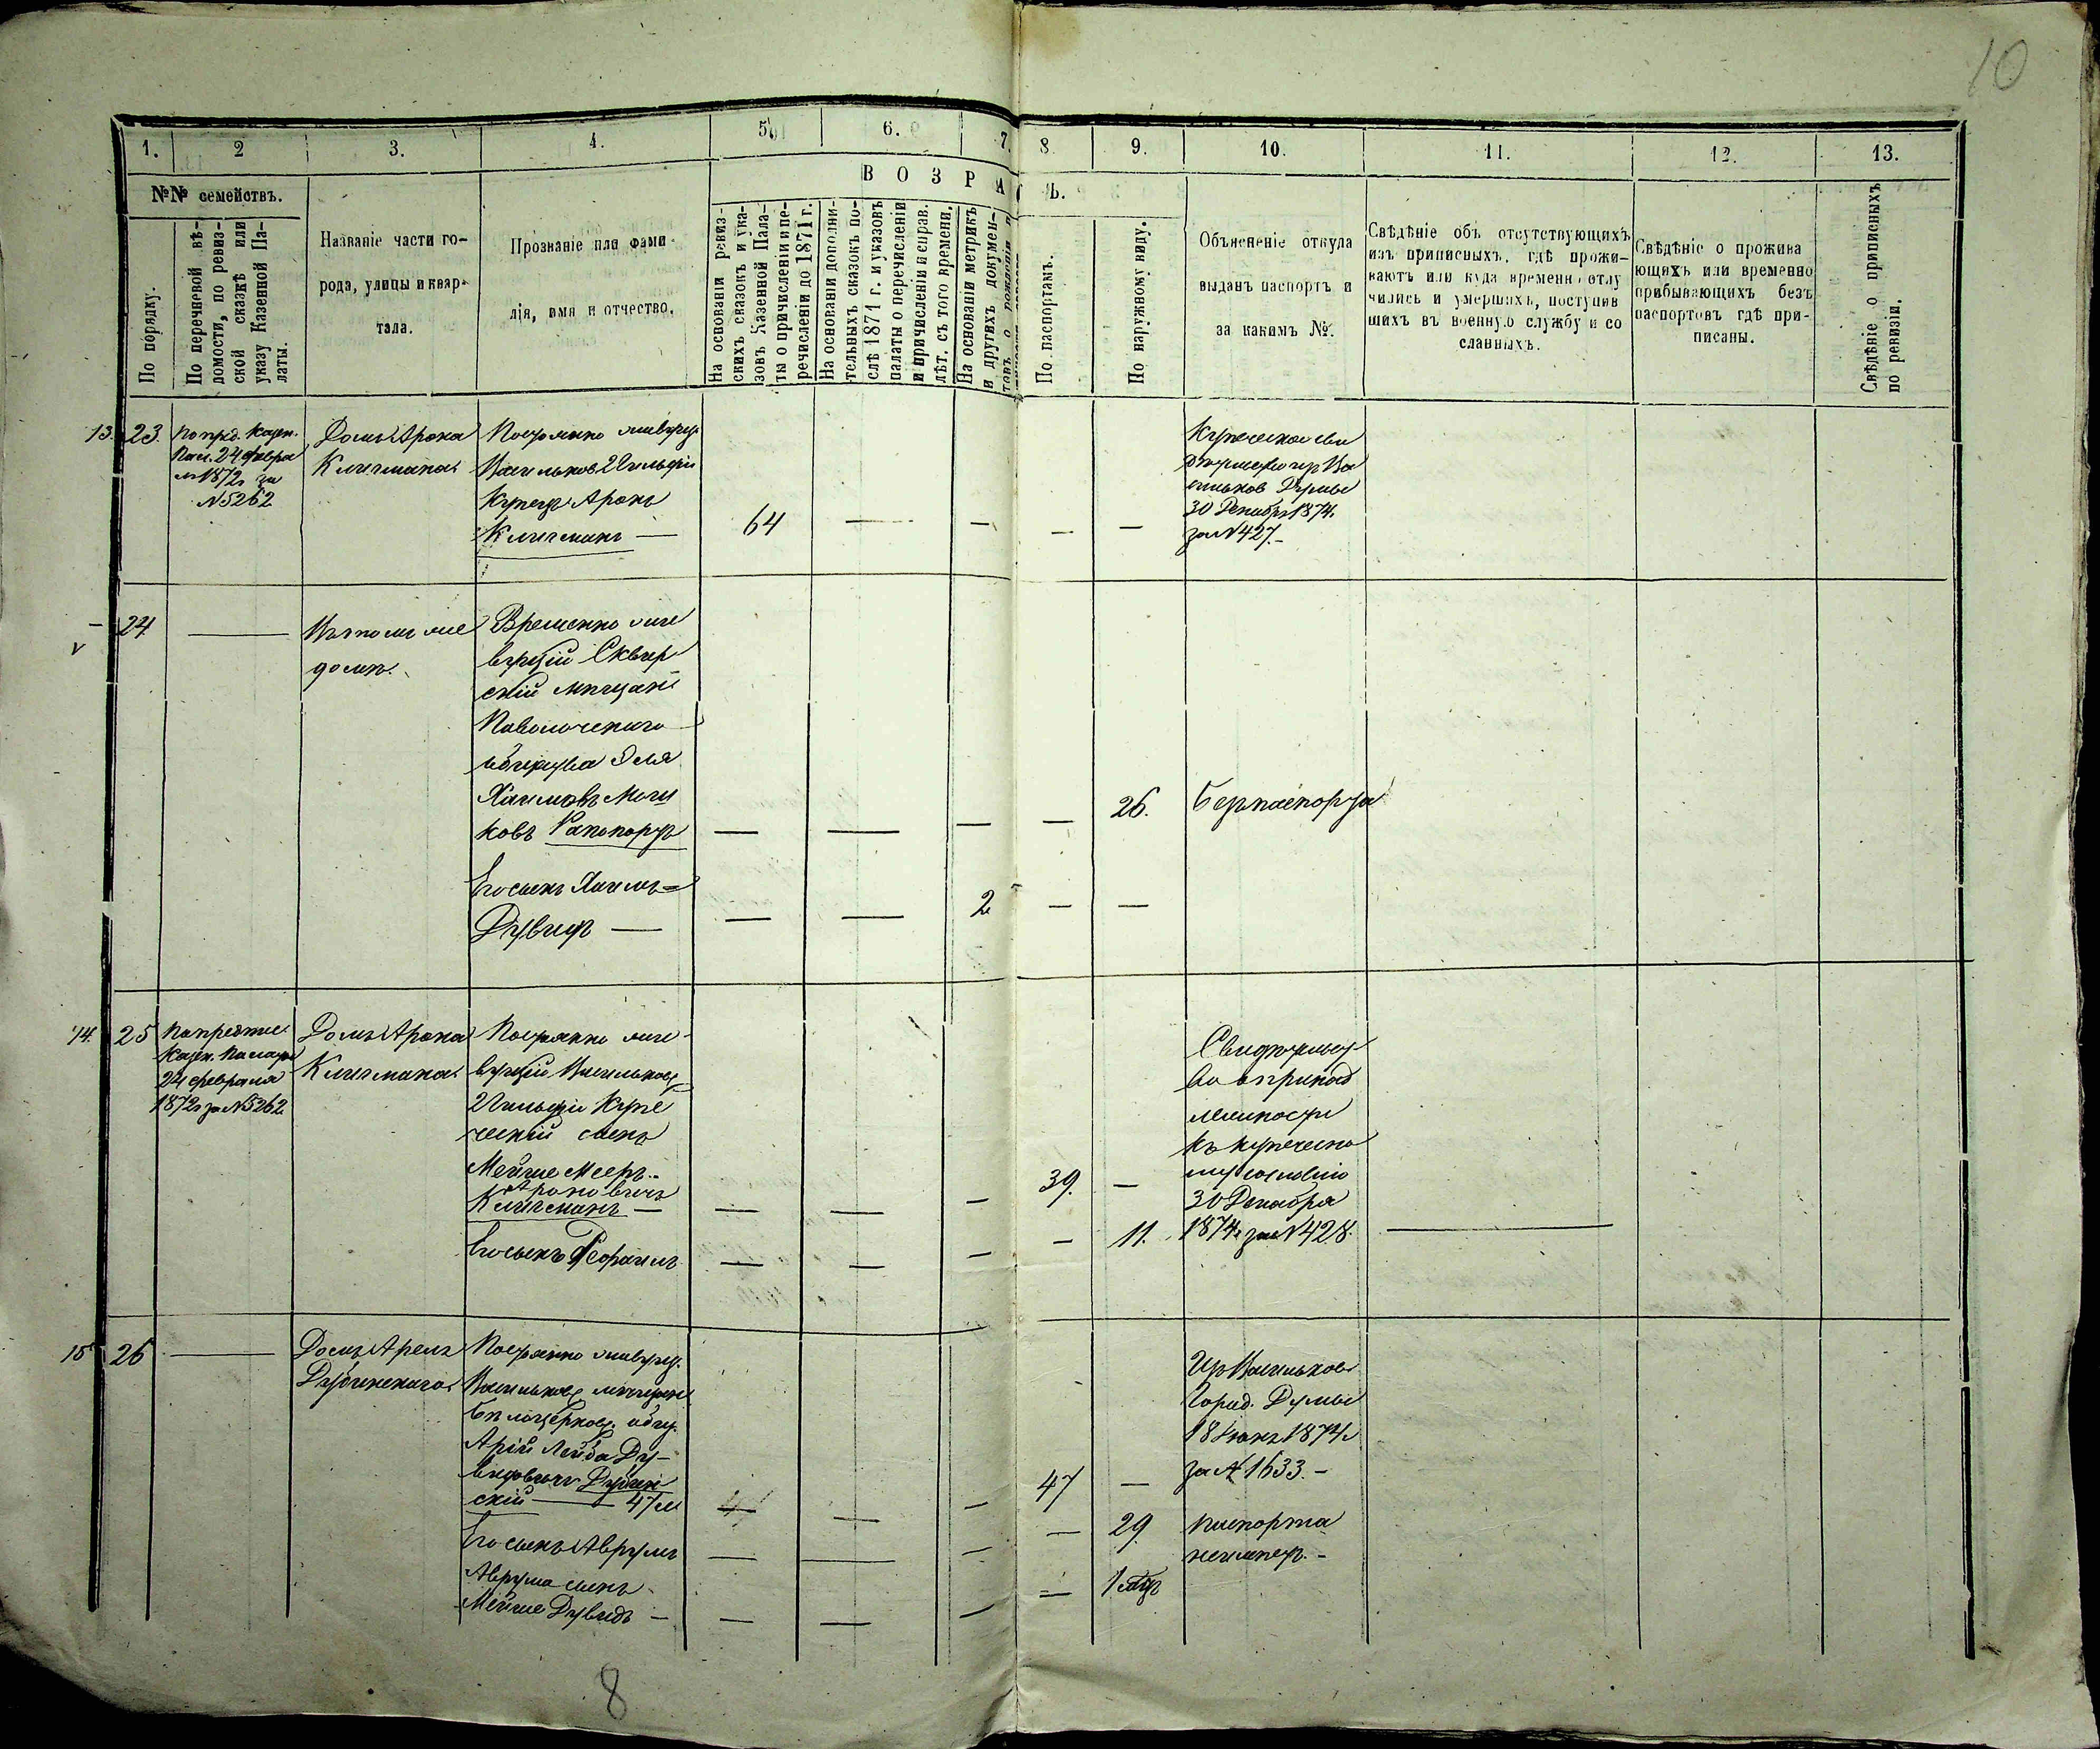 10
1. 2 3. 4. 5. 6. 7. 8 9. 10. 11. 12. 13.
№№ семействъ.
По порядку.
По перечневой вѣ-
домости, по ревиз-
ской сказкѣ или
указу Казенной Па-
латы.
Названіе части го-
рода, улицы и квар-
тала.
Прозваніе или фами-
лія, имя и отчество.
ВОЗРА
Ъ.
На основаніи ревиз-
скихъ сказокъ и ука-
зовъ Казенной Пала-
ты о причисленіи и пе-
речисленіи до 1871 г.
На основаніи дополни-
тельныхъ сказокъ по-
слѣ 1871 г. и указовъ
палаты о перечисленіи
и причисленіи и справ.
лѣт. съ того времени.
На основаніи метрикъ
и другихъ докумен-
товъ о рожденіи и
По паспортамъ.
По наружному виду.
Объясненіе откуда
выданъ паспортъ и
за какимъ №.
Свѣдѣніе объ отсутствующихъ
изъ приписныхъ, гдѣ прожи-
ваютъ или куда временно отлу
чились и умершихъ, поступив
шихъ въ военную службу и со
сланныхъ.
Свѣдѣніе о прожива
ющихъ или временно
прибывающихъ безъ
паспортовъ гдѣ при-
писаны.
Свѣдѣніе о приписныхъ
по ревизіи.
13. 23. По пред. Казен.
Пал. 24 февра
ля 1872 г за
№ 5262
Домъ Арона
Клигмана
Постоянно живущ.
Васильков. 2 Гильдіи
Купецъ Аронъ
Клигманъ —
64 — — — —
Купеческое сви
дѣтельство изъ Ва
сильков Думы
30 Декабря 1874 г.
за № 427. –
24 — Въ томъ же
домѣ.
Временно жи
вущій Сквир
скій мѣщан.
Паволочскаго
общества Эля
Хаимовъ
ковъ Рапопортъ
— — — — 26. Безъ паспорта
Его сынъ Хаимъ =
Дувидъ —
— — 2 — —
14. 25 По предпис.
Казен. Палаты
24 февраля
1872 г за № 5262
Домъ Арона
Клигмана
Постоянно жи-
вущій Васильков.
2 Гильдіи Купе
ческій сынъ
Мейше Мееръ
Ароновичъ
Клигманъ —
— — — 39. —
Его сынъ Исраиль
— — — — 11.
Свидѣтельст
во о принад
лежности
къ купеческо
му сословію
30 Декабря
1874 г за № 428.
15 26 — Домъ Арелъ
Дубинскаго
Постоянно живущ.
Васильков. мѣщан
Бѣлоцерков. общ.
Арій Лейба Ду-
видовичъ Дубин
скій — 47 л
— — — 47 —
Изъ Васильков
Город. Думы
18 Іюня 1874 г
за № 1633. –
Его сынъ Аврумъ
— — — — 29 паспорта
не имѣетъ. –
Аврума сынъ
Мейше Дувидъ —
— — — — 1 мѣсяцъ
8